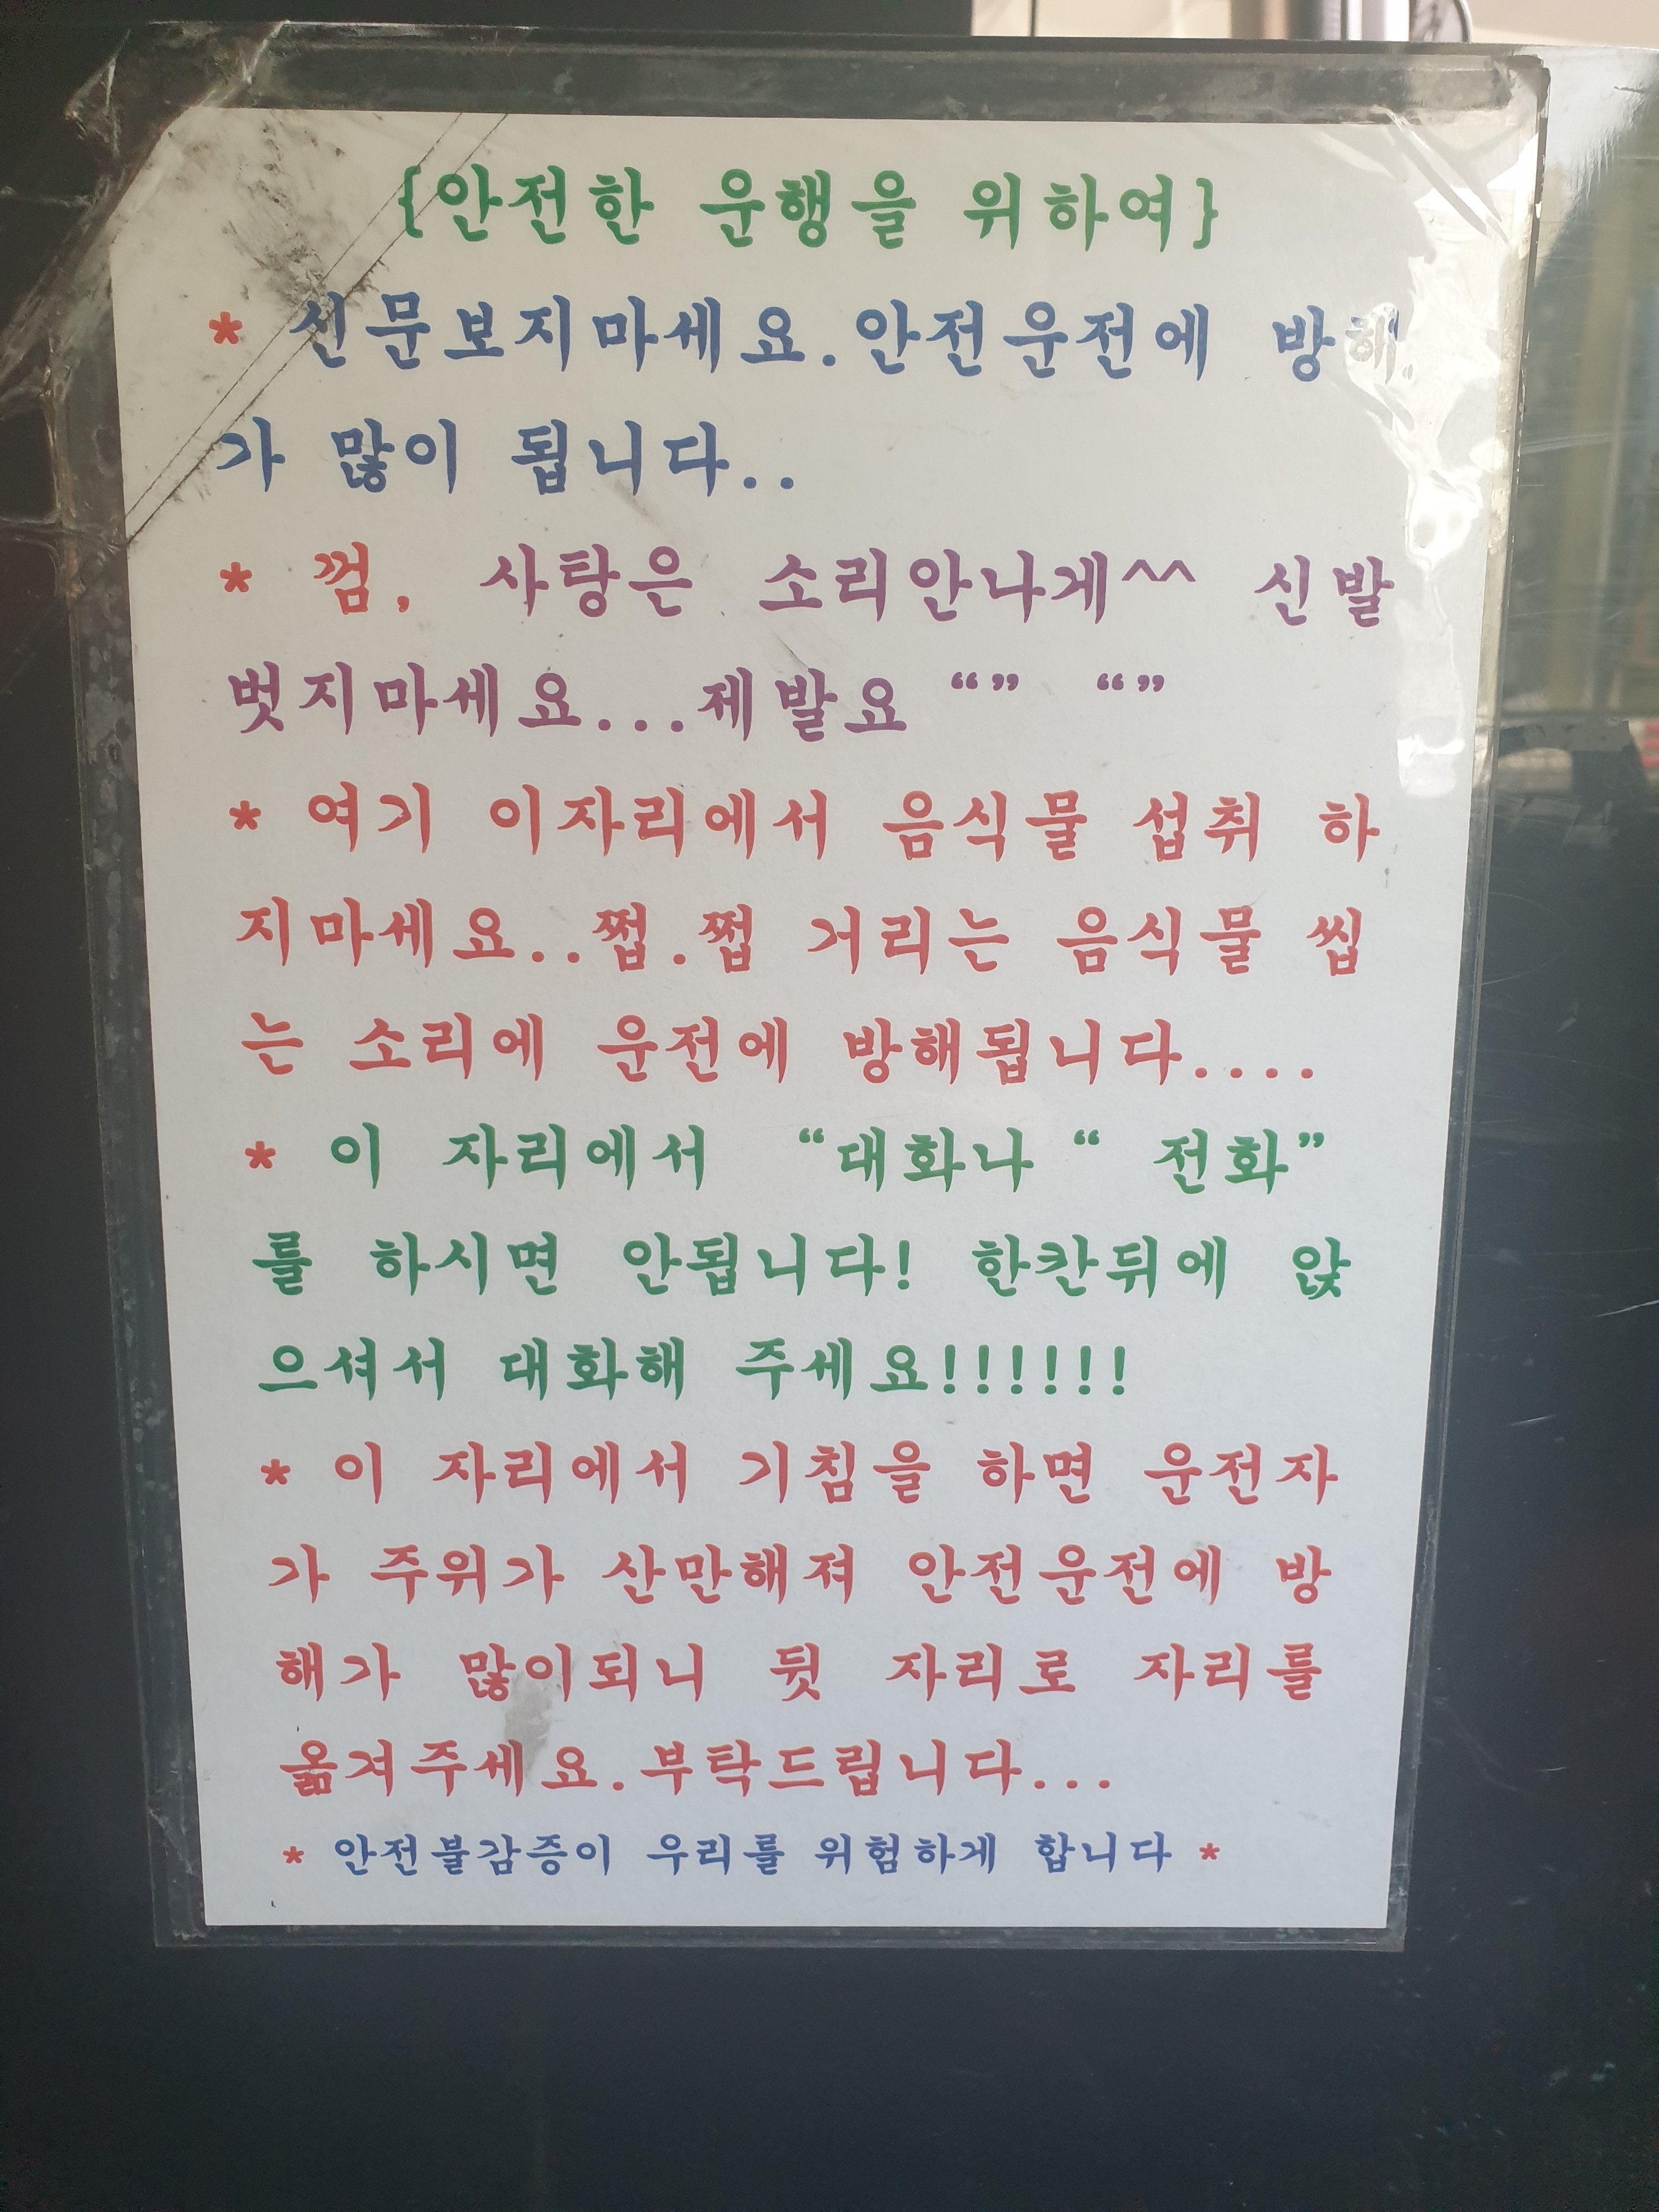 {안전한 운행을 위하여}
* 신문보지마세요.안전운전에 방해
가 많이 됩니다..
* 껌, 사탕은 소리안나게^^ 신발
벗지마세요...제발요 “” “”
* 여기 이자리에서 음식물 섭취 하
지마세요..쩝.쩝 거리는 음식물 씹
는 소리에 운전에 방해됩니다....
* 이 자리에서 “대화나 “ 전화”
를 하시면 안됩니다! 한칸뒤에 앉
으셔서 대화해 주세요!!!!!!
* 이 자리에서 기침을 하면 운전자
가 주위가 산만해져 안전운전에 방
해가 많이되니 뒷 자리로 자리를
옮겨주세요.부탁드립니다...
* 안전불감증이 우리를 위험하게 합니다 *